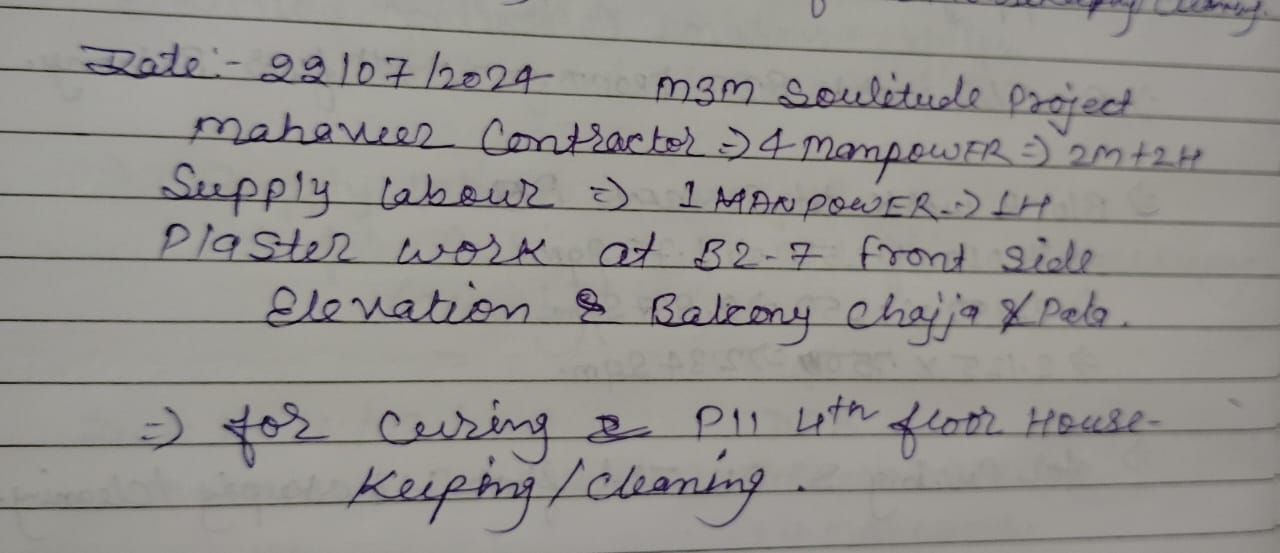 Housekeeping/Cleaning.
Date:- 22/07/2024 M3M Soulitude Project
Mahaveer Contractor => 4 Manpower => 2M+2H
Supply labour => 1 MANPOWER => 1H
Plaster work at B2-7 front side
Elevation & Balcony Chajja & Pata.
=> for Curing & P11 4th floor House-
Keeping/Cleaning.